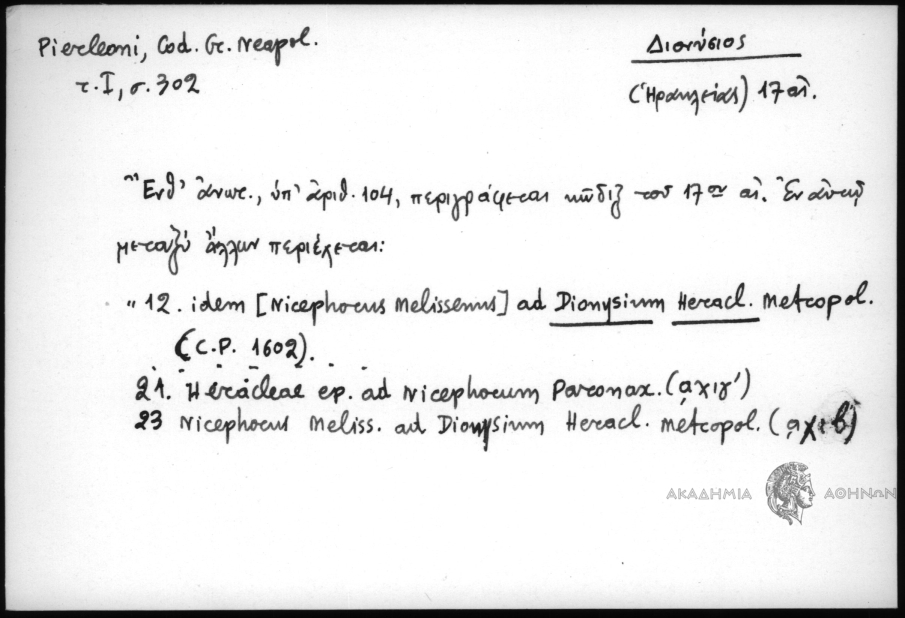 Pierleoni, Cod. Gr. Neapol.
τ. I, σ. 302
Διονύσιος
(Ἡρακλείας) 17 αἰ.
"Ἔνθ' ἄνωτ., ὑπ' ἀριθ. 104, περιγράφεται κῶδιξ τοῦ 17ου αἰ. Ἐν αὐτῷ
μεταξὺ ἄλλων περιέχεται:
"12. idem [Nicephorus Melissenus] ad Dionysium Heracl. Metropol.
(C.P. 1602).
21. Heracleae ep. ad Nicephorum Paronax. (͵αχιγ')
23 Nicephorus Meliss. ad Dionysium Heracl. metropol.
ΑΚΑΔΗΜΙΑ ΑΘΗΝΩΝ